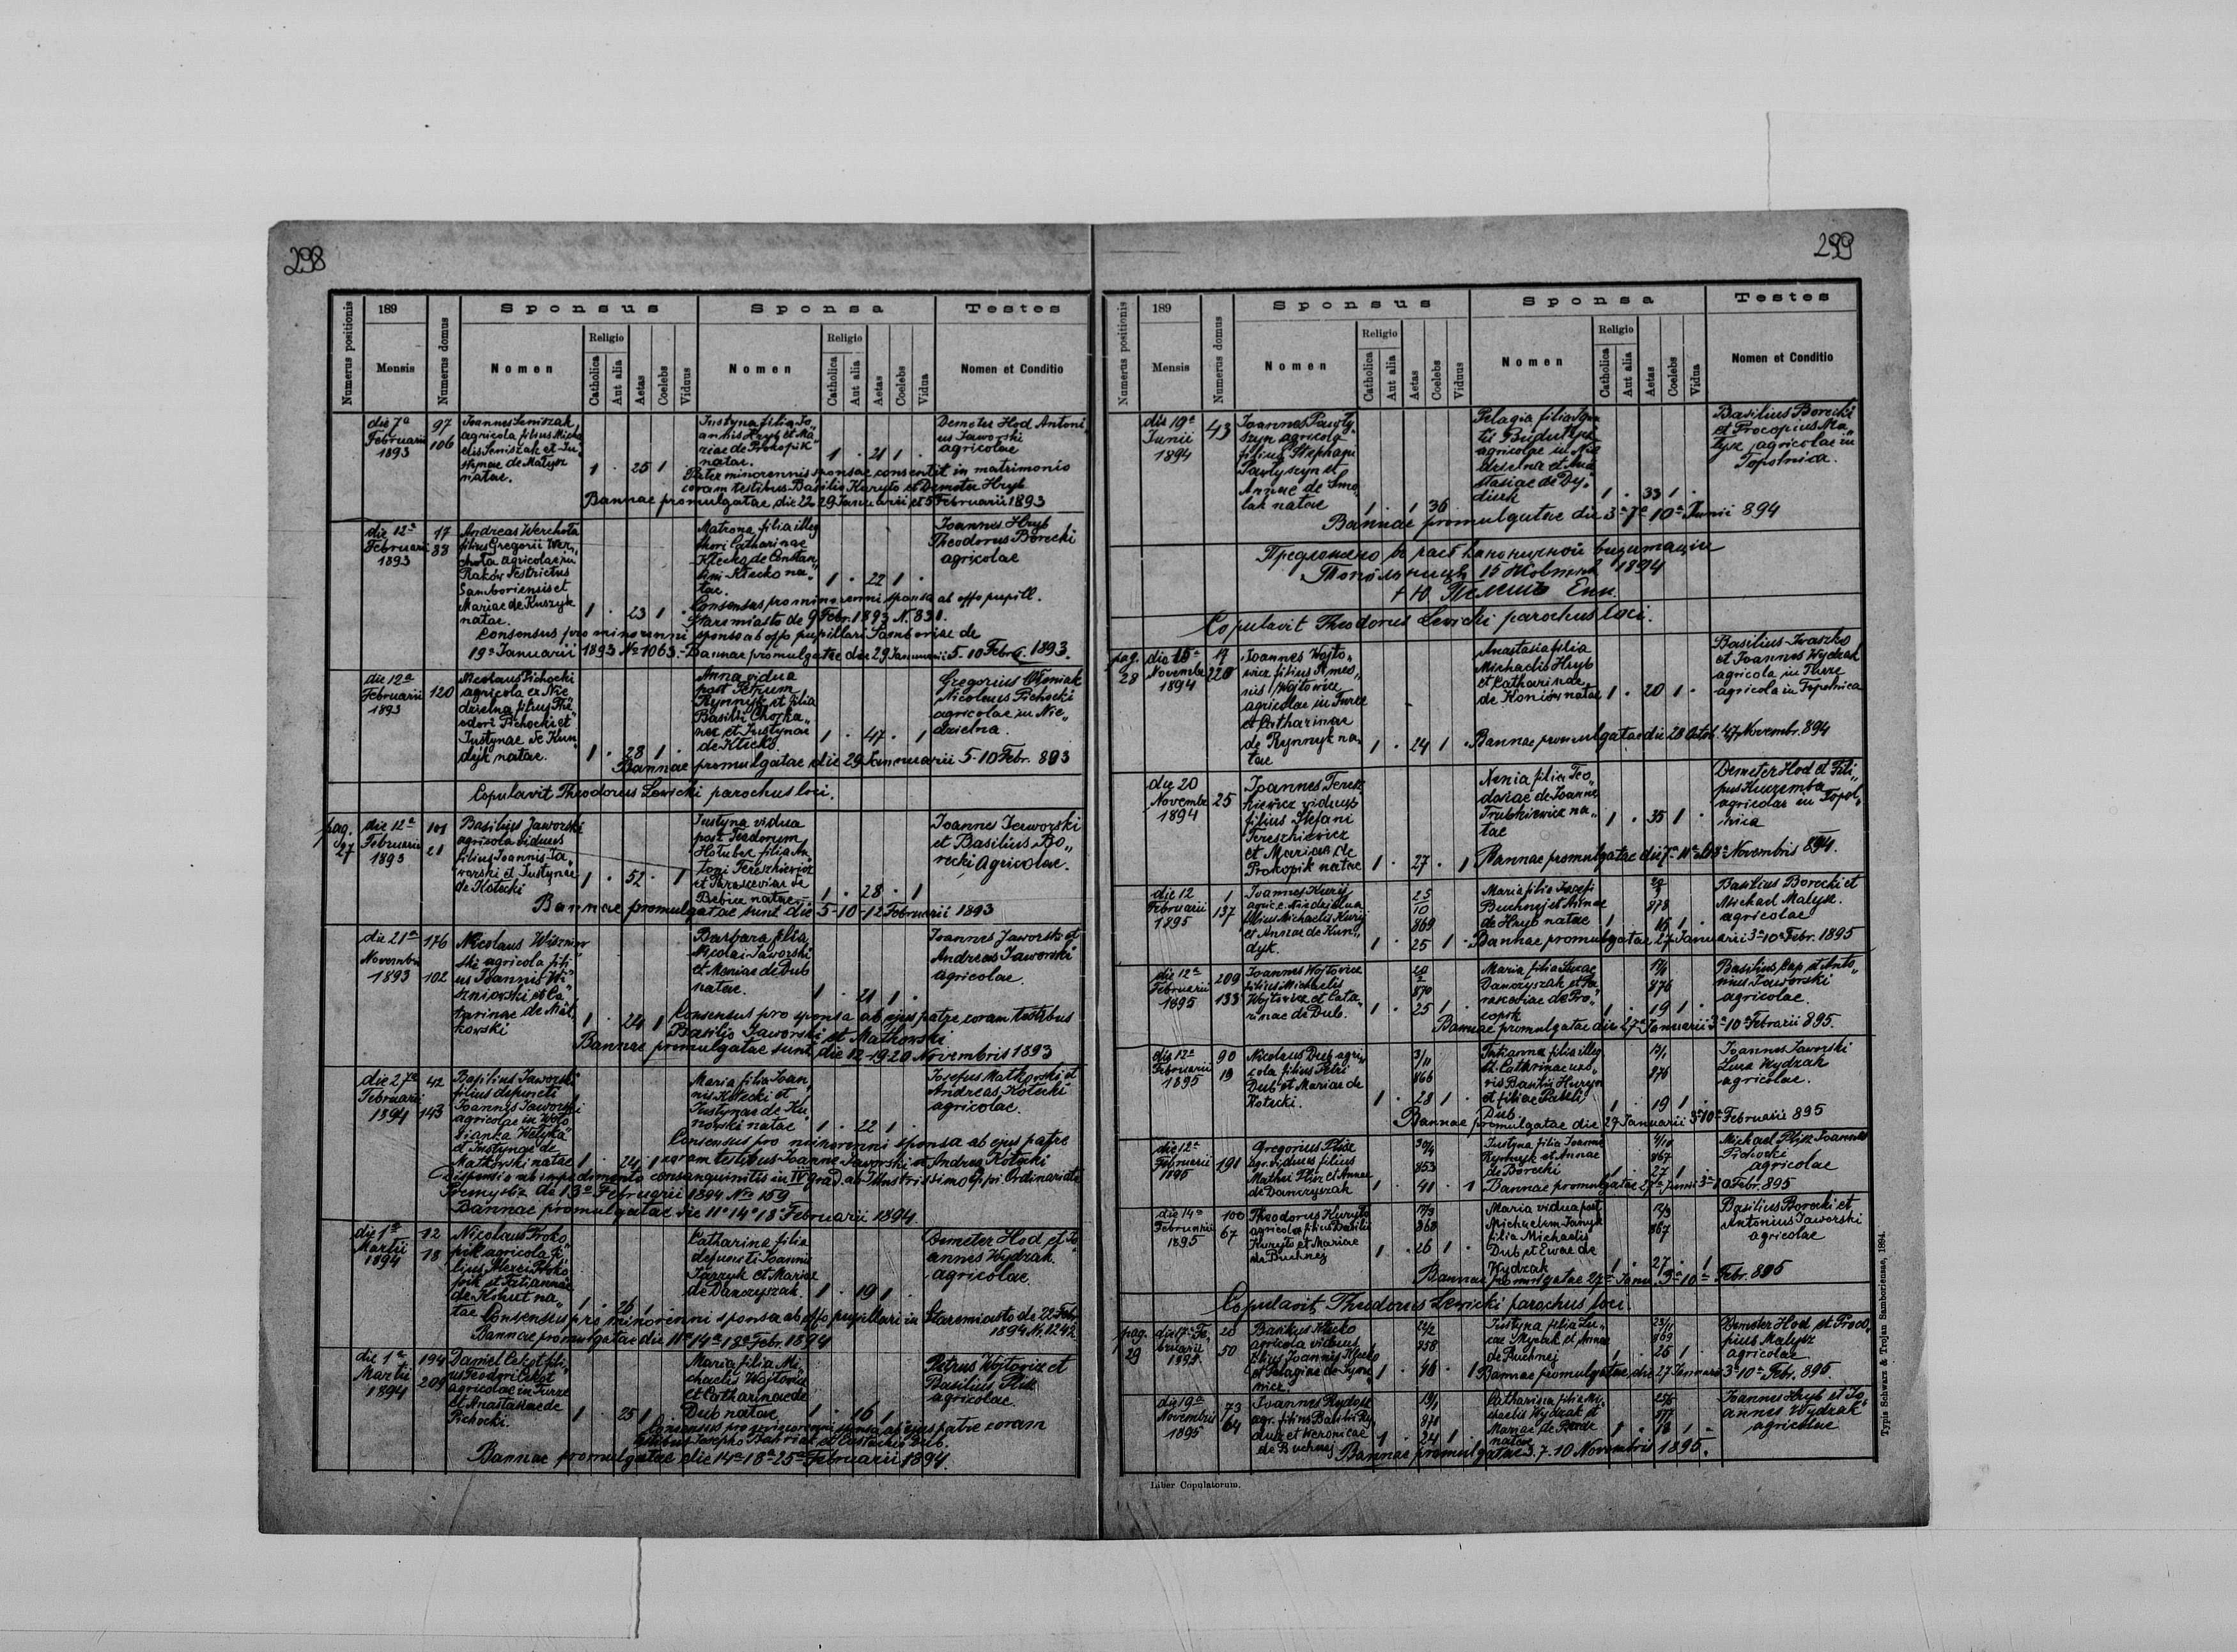 298
Numerus positionis
189
Mensis
Numerus domus
Sponsus
Sponsa
Testes
Nomen
Religio
Catholica
Aut alia
Aetas
Coelebs
Viduus
Nomen
Religio
Catholica
Aut alia
Aetas
Coelebs
Vidua
Nomen et Conditio
die 7a
Februarii
1893
97
106
Joannes Semiszak
agricola filius Micha
elis Semiszak et Ju„
stynae de Matysz
natae.
1 . 25 1 .
Justyna filia Jo„
annis Hryb et Ma„
riae de Prokopik
natae.
1 . 21 1 .
Demeter Hod Antoni„
us Jaworski
agricolae
Pater minorennis sponsae consentit in matrimonio
coram testibus Basilio Kuryto et Demeter Hryb
Bannae promulgatae die 22 29 Januarii et 5 Februarii 1893
die 12a
Februarii
1893
17
88
Andreas Werchola
filius Gregorii Wer„
chola agricolae in
Raków Districtus
Samboriensis et
Mariae de Kuszyk
natae.
1 . 23 1 .
Matrona filia illeg
thori Catharinae
Klecko de Constan„
tini Klecko na„
tae.
1 . 22 1 .
Joannes Hryb
Theodorus Borecki
agricolae
Consensus pro minorenni sponsa ab offo pupill.
Staremiasto de 9 Febr. 1893 N. 831.
Consensus pro minorenni sponso ab offo pupillari Samboriae de
19a Januarii 1893 No 1063.- Bannae promulgatae die 29 Januarii 5-10 Febr. 1893.
die 12a
Februarii
1893
120
Nicolaus Pichocki
agricola ex Nie„
dzielna filius The„
odori Pichocki et
Justynae de Kun„
dyk natae.
1 . 28 1 .
Anna vidua
post Petrum
Rynnyk et filia
Basilii
et Justynae
de Klecko.
1 . 47 . 1
Gregorius
Nicolaus Pichocki
agricolae in Nie„
dzielna.
Bannae promulgatae die 29 Januarii 5-10 Febr. 893
Copulavit Theodorus Lewicki parochus loci.
pag.
27
die 12a
Februarii
1893
101
21
Basilius Jaworski
agricola viduus
filius Joannis Ja„
worski et Justynae
de Kotecki
1 . 52 . 1
Justyna vidua
post Teodorum
Hotubek filia An„
tonii Tereszkiewicz
et Parasceviae de
Bebex natae.
1 . 28 . 1
Joannes Jaworski
et Basilius Bo„
recki agricolae.
Bannae promulgatae sunt die 5-10-12 Februarii 1893
die 21a
Novembris
1893
176
102
Nicolaus Wiszniow
ski agricola fili
us Joannis Wi„
szniowski et Ca„
tarinae de Mat„
kowski
1 . 24 1
Barbara filia
Nicolai Jaworski
et Mariae de Dub
natae.
1 . 21 1 .
Joannes Jaworski et
Andreas Jaworski
agricolae.
Consensus pro sponsa ab ejus patre coram testibus
Basilio Jaworski et Matkowski
Bannae promulgatae sunt die 12-19-20 Novembris 1893
die 27a
Februarii
1894
42
143
Basilius Jaworski
filius defuncti
Joannis Jaworski
agricolae in Woło
sianka Wełyka
et Justynae de
Matkowski natae
1 . 24 . 1
Maria filia Joan„
nis Kotecki et
Justynae de Ku„
nowski natae
1 . 22 1 .
Josephus Matkowski et
Andreas Kotecki
agricolae.
Consensus pro minorenni sponsa ab ejus patre
coram testibus Joanne Jaworski et Andrea Kotecki
Dispensio ab impedimento consanguinitis in IV grad. ab Illustrissimo Eppi Ordinariatu
Premysliz de 13a Februarii 1894 No 159
Bannae promulgatae die 11a 14a 18a Februarii 1894.
die 1a
Martii
1894
12
18
Nicolaus Proko„
pik agricola fi„
lius Alexei Proko„
pik et Tatiannae
de Kohut na„
tae
1 . 26 1 .
Catharina filia
defuncti Joannis
Jarzyk et Mariae
de Danczyszak.
1 . 19 1 .
Demeter Hod et Jo„
annes Wydzak.
agricolae
Consensus pro minorenni sponsa ab offo pupillari in Staremiasto de 22 Febr.
1894 Nr. 1242.
Bannae promulgatae die 11a 14a 18a Febr. 1894
die 1a
Martii
1894
194
209
Daniel Cekot fili„
us Teodori Cekot
agricolae in Turze
et Anastasiae de
Pichocki.
1 . 25 1
Maria filia Mi„
chaelis Wojtowicz
et Catharinae de
Dub natae
1 . 16 1
Petrus Wojtowicz et
Basilius Plisz
agricolae.
Consensus pro minorenni sponsa ab ejus patre coram
testibus Josepho et Eustachio Dub.
Bannae promulgatae die 14a-18a-25a Februarii 1894.
299
Numerus positionis
189
Mensis
Numerus domus
Sponsus
Sponsa
Testes
Nomen
Religio
Catholica
Aut alia
Aetas
Coelebs
Viduus
Nomen
Religio
Catholica
Aut alia
Aetas
Coelebs
Vidua
Nomen et Conditio
die 19a
Junii
1894
43
Joannes Pawły„
szyn agricola
filius Stephani
Pawłyszyn et
Annae de Smo„
lak natae
1 . 1 36
Pelagia filia Igna
tii
agricolae in Nie
dzielna et Ana„
stasiae de Dy„
diuk
1 . 33 1 .
Basilius Borecki
et Procopius Ma„
tysz agricolae in
Topolnica.
Bannae promulgatae die 3a 7a 10a Junii 894
Предложено въ часѣ каноничной визитаціи
Тополници 15 Жовтня 1894
† Ю Пелешъ Епп.
Copulavit Theodorus Lewicki parochus loci.
pag.
28
die 15a
Novembr
1894
17
220
Joannes Wojto„
wicz filius
Wojtowicz
agricolae in Turze
et Catharinae
de Rynnyk na„
tae
1 . 24 1 .
Anastasia filia
Michaelis Hryb
et Catharinae
de Koniów natae
1 . 20 1 .
Basilius Iwaszko
et Joannes Wydzak
agricola in Turze
agricola in Topolnica
Bannae promulgatae die 28 Octob. 4 7 Novembr. 894
die 20
Novembr
1894
25
Joannes Teresz
kiewicz viduus
filius Stefani
Tereszkiewicz
et Mariae de
Prokopik natae
1 . 27 . 1
Xenia filia Teo„
dosiae de Joanne
Trubkiewicz na„
tae
1 . 35 1 .
Demeter Hod et Fili„
pus Kuzemba
agricolae in Topol„
nica
Bannae promulgatae die 7a 11a et 18a Novembris 894.
die 12
Februarii
1895
1
137
Joannes Kurij
agric. e Niedzielna
filius Michaelis Kurij
et Annae de Kun„
dyk.
25
10
869
1 . 25 1 .
Maria filia Josefi
Buchnej et Annae
de Hryb natae
878
1 . 16 1 .
Basilius Borecki et
Michael Matysz.
agricolae
Bannae promulgatae 27 Januarii 3a 10a Febr. 1895
die 12a
Februarii
1895
209
133
Joannes Wojtowicz
filius Michaelis
Wojtowicz et Cata„
rinae de Dub.
20
870
1 . 25 1 .
Maria filia Lucae
Danczyszak et Pa„
rasceviae de Pro„
copik
876
1 . 19 1 .
Basilius Cap et Anto„
nius Jaworski
agricolae.
Bannae promulgatae die 27a Januarii 3a 10a Februarii 895.
die 12a
Februarii
1895
90
19
Nicolaus Dub agri„
cola filius Petri
Dub et Mariae de
Kotecki.
3/11
866
1 . 28 1 .
Tatianna filia illeg
th. Cathrinae uxo„
ris Basilii Huryn
et filiae Pauli
Dub
876
1 . 19 1 .
Joannes Jaworski
Luca Wydzak
agricolae.
Bannae promulgatae die 27 Januarii 3a 10a Februarii 895
die 12a
Februarii
1895
191
Gregorius Plisz
agr. viduus filius
Mathei Plisz et Annae
de Danczyszak
30/4
853
1 . 41 . 1
Justyna filia Joannis
Rynnyk et Annae
de Borecki
867
1 . 27 1 .
Michael Plisz Joannes
Pichocki
agricolae
Bannae promulgatae 27a Januarii 3a 10 Febr. 895
die 14a
Februarii
1895
100
67
Theodorus Kuryto
agricola filius Basilii
Kuryto et Mariae
de Buchnej
868
1 . 26 1 .
Maria vidua post
Michaelem Janyk
filia Michaelis
Dub et Evae de
Wydzak
12/3
867
1 . 27 . 1
Basilius Borecki et
Antonius Jaworski
agricolae
Bannae promulgatae 27a Janu. 3a 10a Febr. 895
Copulavit Theodorus Lewicki parochus loci.
pag.
29
die 17a Fe„
bruarii
1895
20
50
Basilius Klecko
agricola viduus
filius Joannis Klecko
et Pelagiae de
22/2
858
1 . 46 . 1
Justyna filia Lu„
cae et Annae
de Buchnej
23/11
869
1 . 25 1 .
Demeter Hod et Proco„
pius Matysz
agricolae
Bannae promulgatae die 27 Januarii 3a 10a Febr. 895.
die 19a
Novembris
1895
73
64
Joannes
agr. filius Basilii
et Weronicae
de Buchnej
871
1 . 24 1 .
Catharina filia Mi„
chaelis Wydzak et
Mariae de
natae
877
1 . 18 1 .
Joannes Hryb et Jo„
annes Wydzak
agricolae
Bannae promulgatae 3. 7. 10 Novembris 1895.
Liber Copulatorum.
Typis Schwarz & Trojan Samboriensae, 1894.